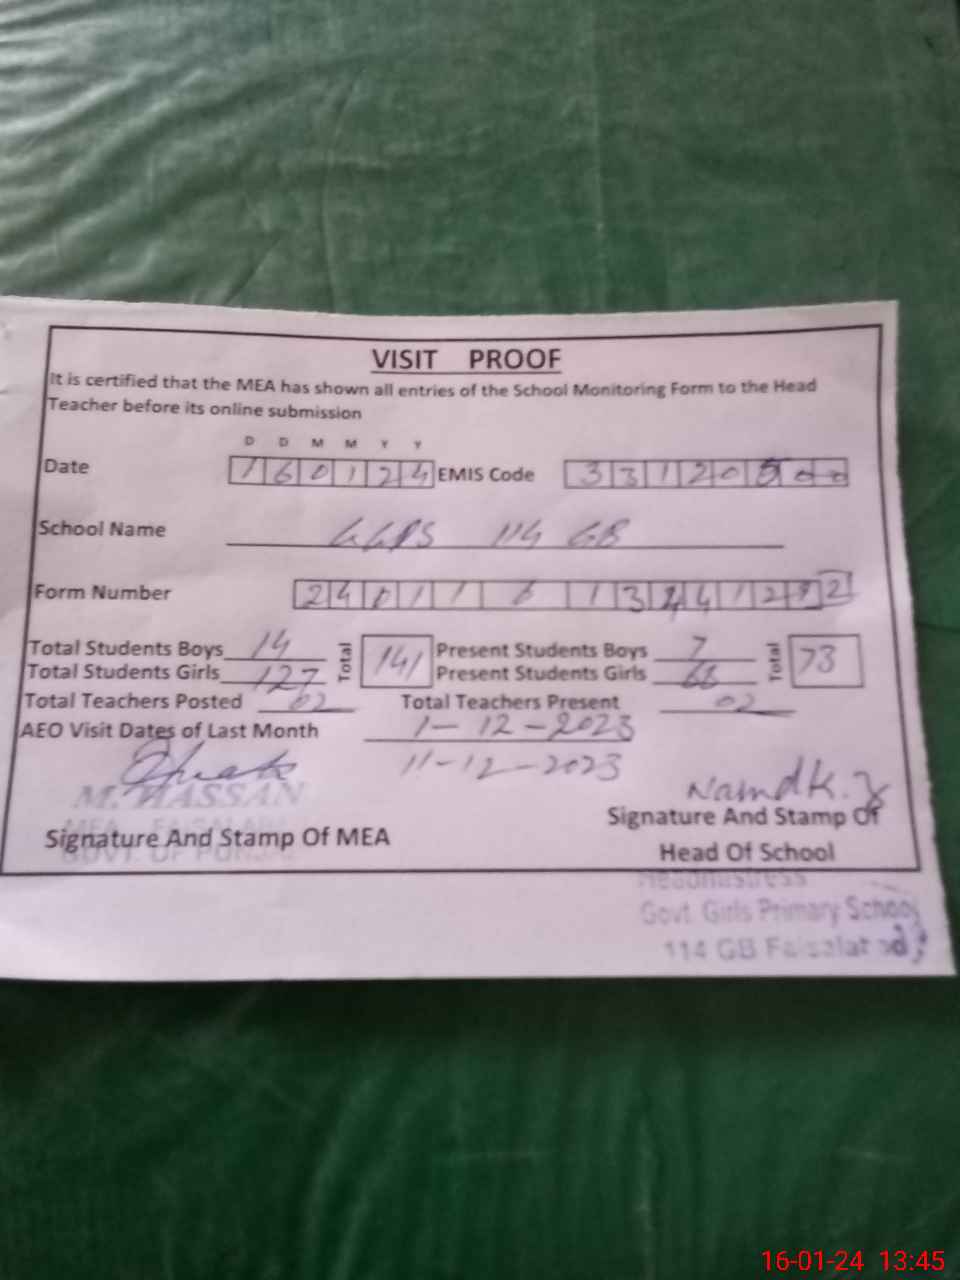 VISIT PROOF
It is certified that the MEA has shown all entries of the School Monitoring Form to the Head
Teacher before its online submission
D D M M Y Y
Date 160124 EMIS Code 33120500
School Name GGPS 114 GB
Form Number
Total Students Boys 14 Total 141 Present Students Boys 7 Total 73
Total Students Girls 127 Present Students Girls
Total Teachers Posted 02 Total Teachers Present 02
AEO Visit Dates of Last Month 1-12-2023
11-12-2023
M. HASSAN
Signature And Stamp Of MEA
Signature And Stamp Of
Head Of School
Headmistress
Govt. Girls Primary School
114 GB Faisalabad
16-01-24 13:45